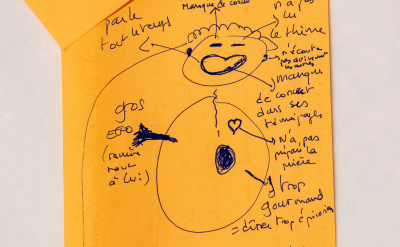 Manque de
n'a pas
lu
le thème
parle
tout le temps
n'écoute
pas
les autres
manque
de concret
dans ses
témoignages
gros
EGO
(ramène
tout
à lui)
n'a pas
préparé la
prière
trop
gourmand
= dîner trop d'